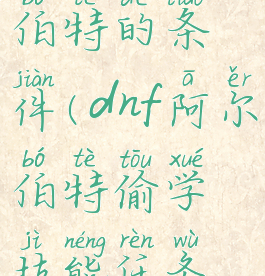 bó tè de tiáo
伯特的条
jiàn ā ěr
件(dnf阿尔
bó tè tōu xué
伯特偷学
jì néng rèn wù
技能任务